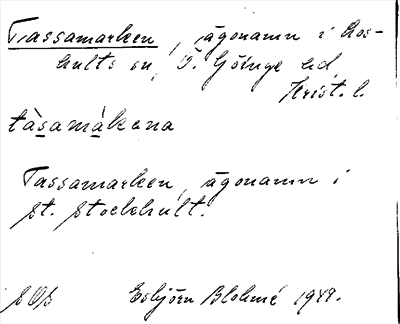 Tassamarken, ägonamn i Los-
hults sn, Ö. Göinge hd,
Krist. l.
tàsamàkena
Tassamarken, ägonamn i
st. Stockhult.
Esbjörn Blohmé 1949.